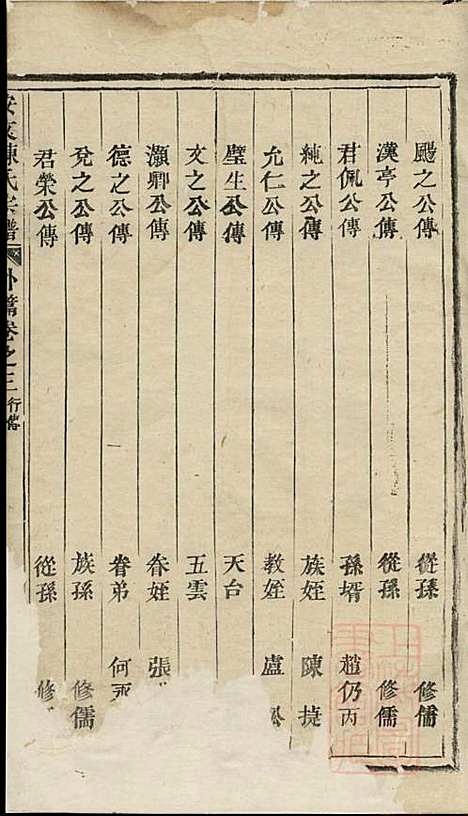 颺之公傳 從孫 修儒
漢亭公傳 從孫 修儒
君佩公傳 孫壻 趙仍丙
純之公傳 族姪 陳捷
允仁公傳 教姪 盧
璧生公傳 天台
文之公傳 五雲
灝卿公傳 眷姪 張
德之公傳 眷弟 何
兌之公傳 族孫 修儒
君榮公傳 從孫 修
陳氏宗譜 外篇卷之三 行傳